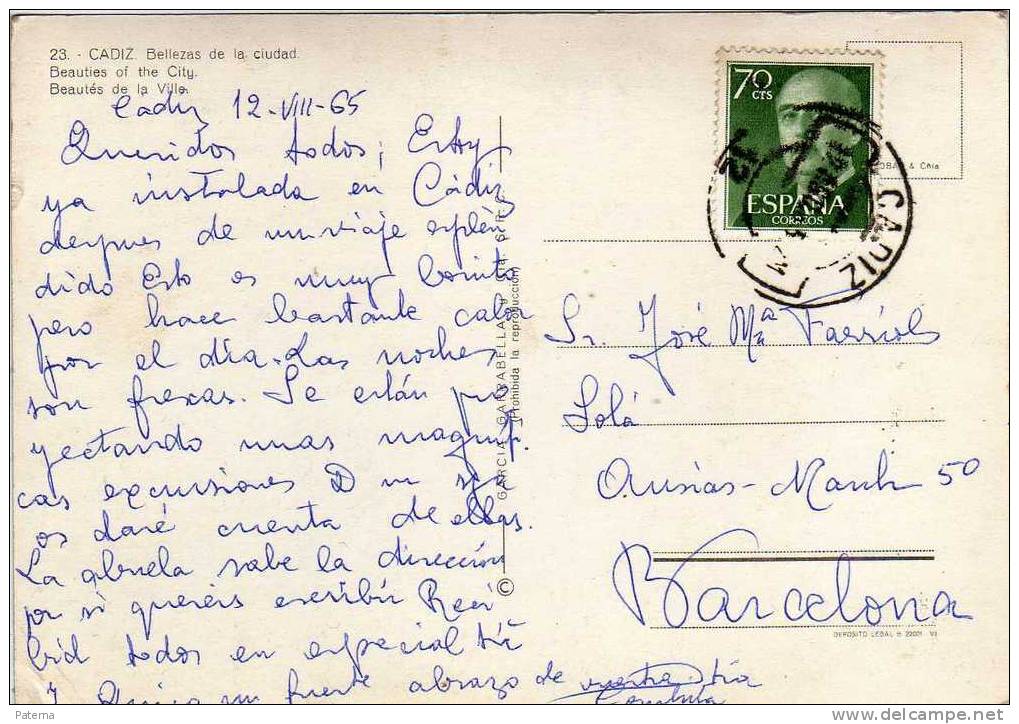 23. - CADIZ. Bellezas de la ciudad.
Beauties of the City.
Beautés de la Ville.
Cadiz 12-VIII-65
Queridos todos; Estoy
ya instalada en Cádiz
despues de un viaje esplén
dido Esto es muy bonito
pero hace bastante calor
por el día. Las noches
son frescas. Se están pro
yectando unas magnifi
cas excursiones
os daré cuenta de ellas.
La abuela sabe la dirección
por si quereis escribir Reci
bid todos en especial tía
y un fuerte abrazo de vuestra tía
© GARCIA GARRABELLA y Cía
(Prohibida la reproducción)
70 CTS
ESPAÑA
CORREOS
CADIZ
12
& Cía
Sr. José Mª Farriols
Solá
Ausias-March 50
Barcelona
DEPOSITO LEGAL B 22001 VI
Paterna
delcampe.net